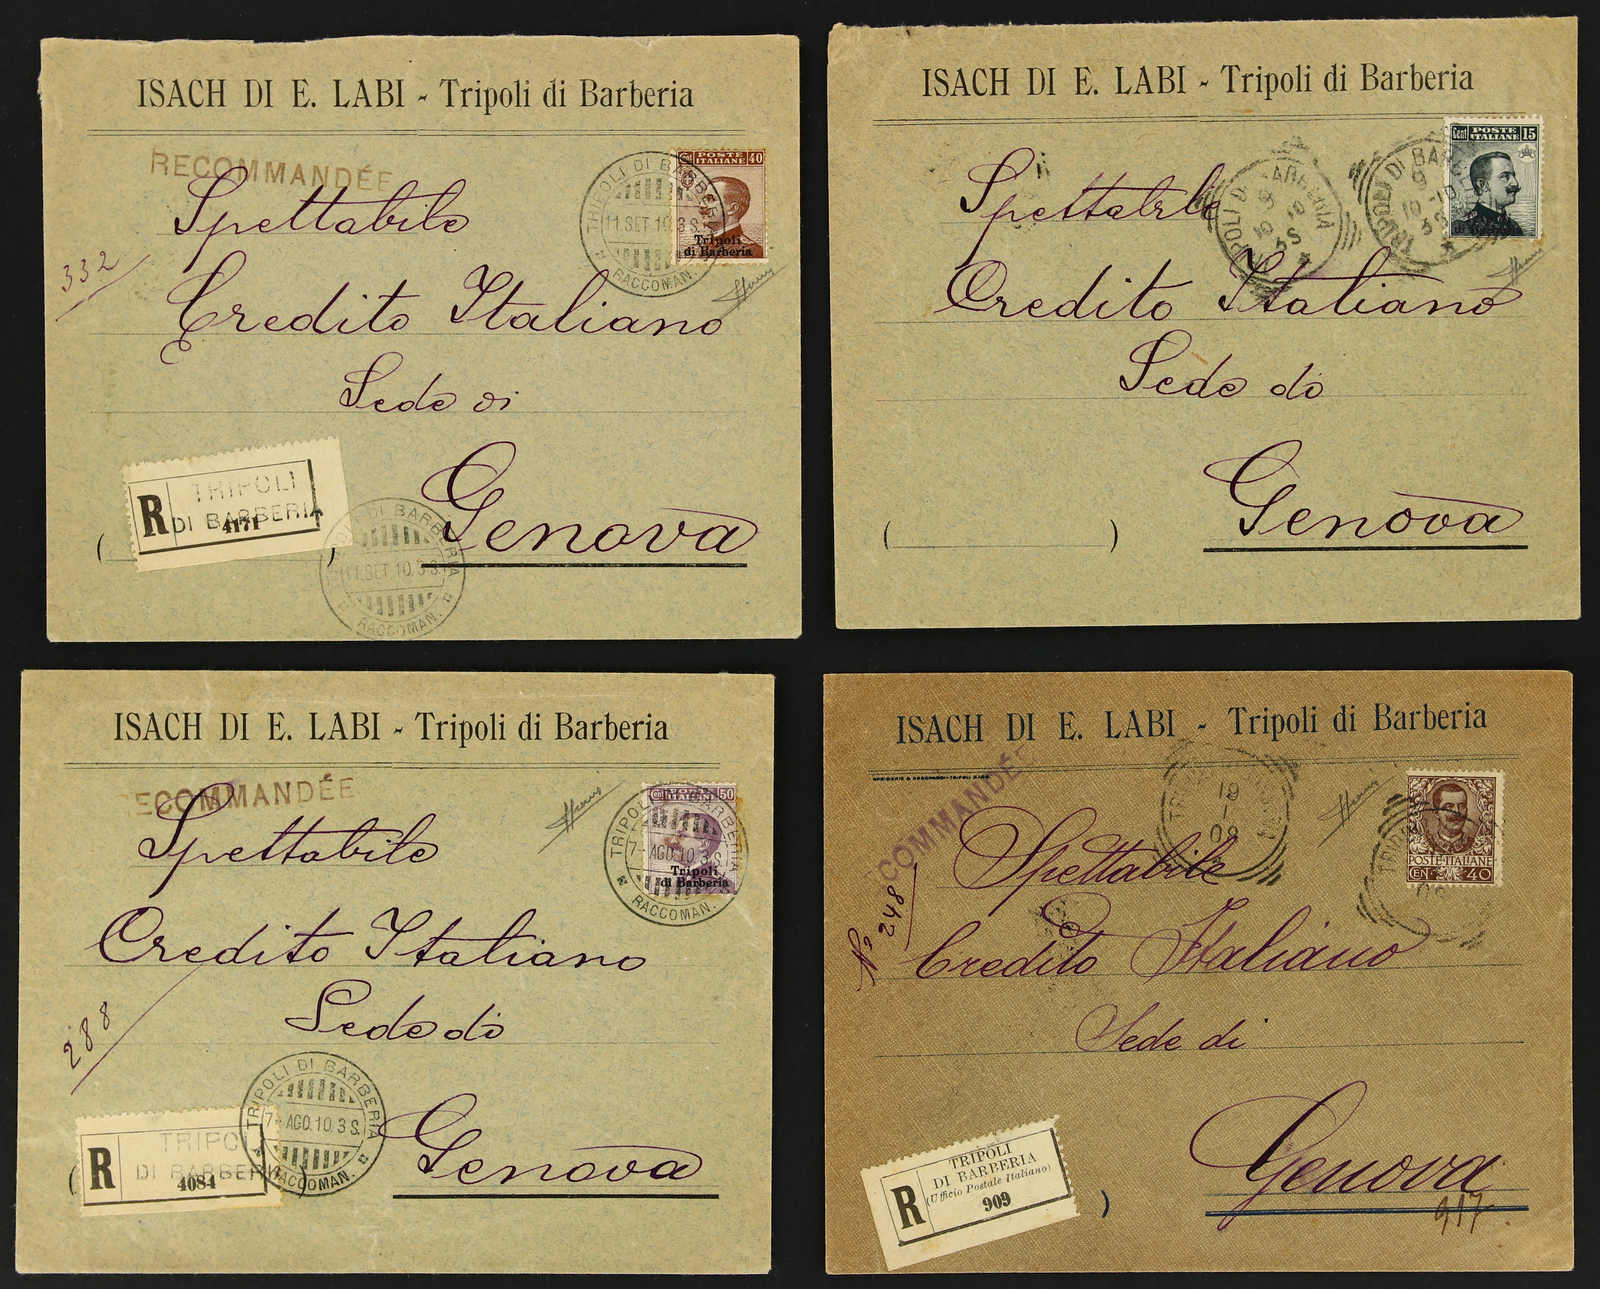 ISACH DI E. LABI - Tripoli di Barberia
RECOMMANDÉE
POSTE
ITALIANE 40
Tripoli
di Barberia
TRIPOLI DI BARBERIA
11.SET.10.3 S.
RACCOMAN.
Spettabile
332
Credito Italiano
Sede di
Genova
R
TRIPOLI
DI BARBERIA
4171
( )
TRIPOLI DI BARBERIA
11.SET.10.3 S.
RACCOMAN.
ISACH DI E. LABI - Tripoli di Barberia
Cent POSTE 15
ITALIANE
TRIPOLI DI BARBERIA
9
10-10
3S
TRIPOLI DI BARBERIA
9
10-10
3S
Spettabile
Credito Italiano
Sede di
Genova
( )
ISACH DI E. LABI - Tripoli di Barberia
RECOMMANDÉE
ITALIANE 50
Tripoli
di Barberia
TRIPOLI DI BARBERIA
7-AGO.10.3 S.
RACCOMAN.
Spettabile
Credito Italiano
288
Sede di
Genova
R
TRIPOLI
DI BARBERIA
4084
TRIPOLI DI BARBERIA
7-AGO.10.3 S.
RACCOMAN.
ISACH DI E. LABI - Tripoli di Barberia
RECOMMANDÉE
19
1
09
POSTE·ITALIANE
CEN. 40
Spettabile
No 248
Credito Italiano
Sede di
Genova
917
R
TRIPOLI
DI BARBERIA
(Ufficio Postale Italiano)
909
)